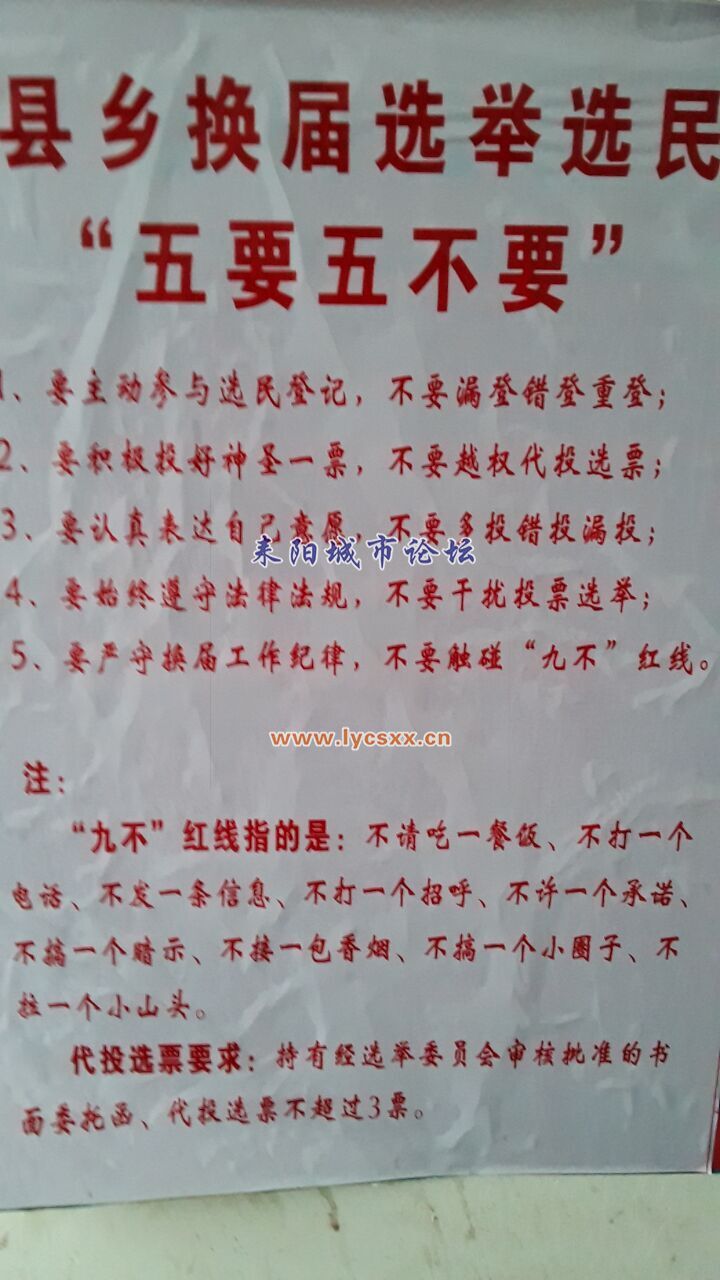 县乡换届选举选民
“五要五不要”
1、要主动参与选民登记，不要漏登错登重登；
2、要积极投好神圣一票，不要越权代投选票；
3、要认真表达自己意愿，不要多投错投漏投；
耒阳城市论坛
4、要始终遵守法律法规，不要干扰投票选举；
5、要严守换届工作纪律，不要触碰“九不”红线。
www.lycsxx.cn
注：
“九不”红线指的是：不请吃一餐饭、不打一个
电话、不发一条信息、不打一个招呼、不许一个承诺、
不搞一个暗示、不接一包香烟、不搞一个小圈子、不
拉一个小山头。
代投选票要求：持有经选举委员会审核批准的书
面委托函、代投选票不超过3票。